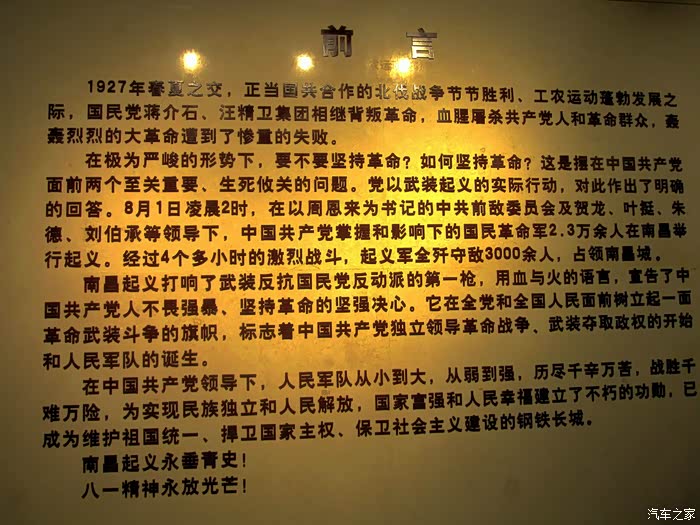 前言
1927年春夏之交，正当国共合作的北伐战争节节胜利、工农运动蓬勃发展之
际，国民党蒋介石、汪精卫集团相继背叛革命，血腥屠杀共产党人和革命群众，轰
轰烈烈的大革命遭到了惨重的失败。
在极为严峻的形势下，要不要坚持革命？如何坚持革命？这是摆在中国共产党
面前两个至关重要、生死攸关的问题。党以武装起义的实际行动，对此作出了明确
的回答。8月1日凌晨2时，在以周恩来为书记的中共前敌委员会及贺龙、叶挺、朱
德、刘伯承等领导下，中国共产党掌握和影响下的国民革命军2.3万余人在南昌举
行起义。经过4个多小时的激烈战斗，起义军全歼守敌3000余人，占领南昌城。
南昌起义打响了武装反抗国民党反动派的第一枪，用血与火的语言，宣告了中
国共产党人不畏强暴、坚持革命的坚强决心。它在全党和全国人民面前树立起一面
革命武装斗争的旗帜，标志着中国共产党独立领导革命战争、武装夺取政权的开始
和人民军队的诞生。
在中国共产党领导下，人民军队从小到大，从弱到强，历尽千辛万苦，战胜千
难万险，为实现民族独立和人民解放，国家富强和人民幸福建立了不朽的功勋，已
成为维护祖国统一、捍卫国家主权、保卫社会主义建设的钢铁长城。
南昌起义永垂青史！
八一精神永放光芒！
汽车之家